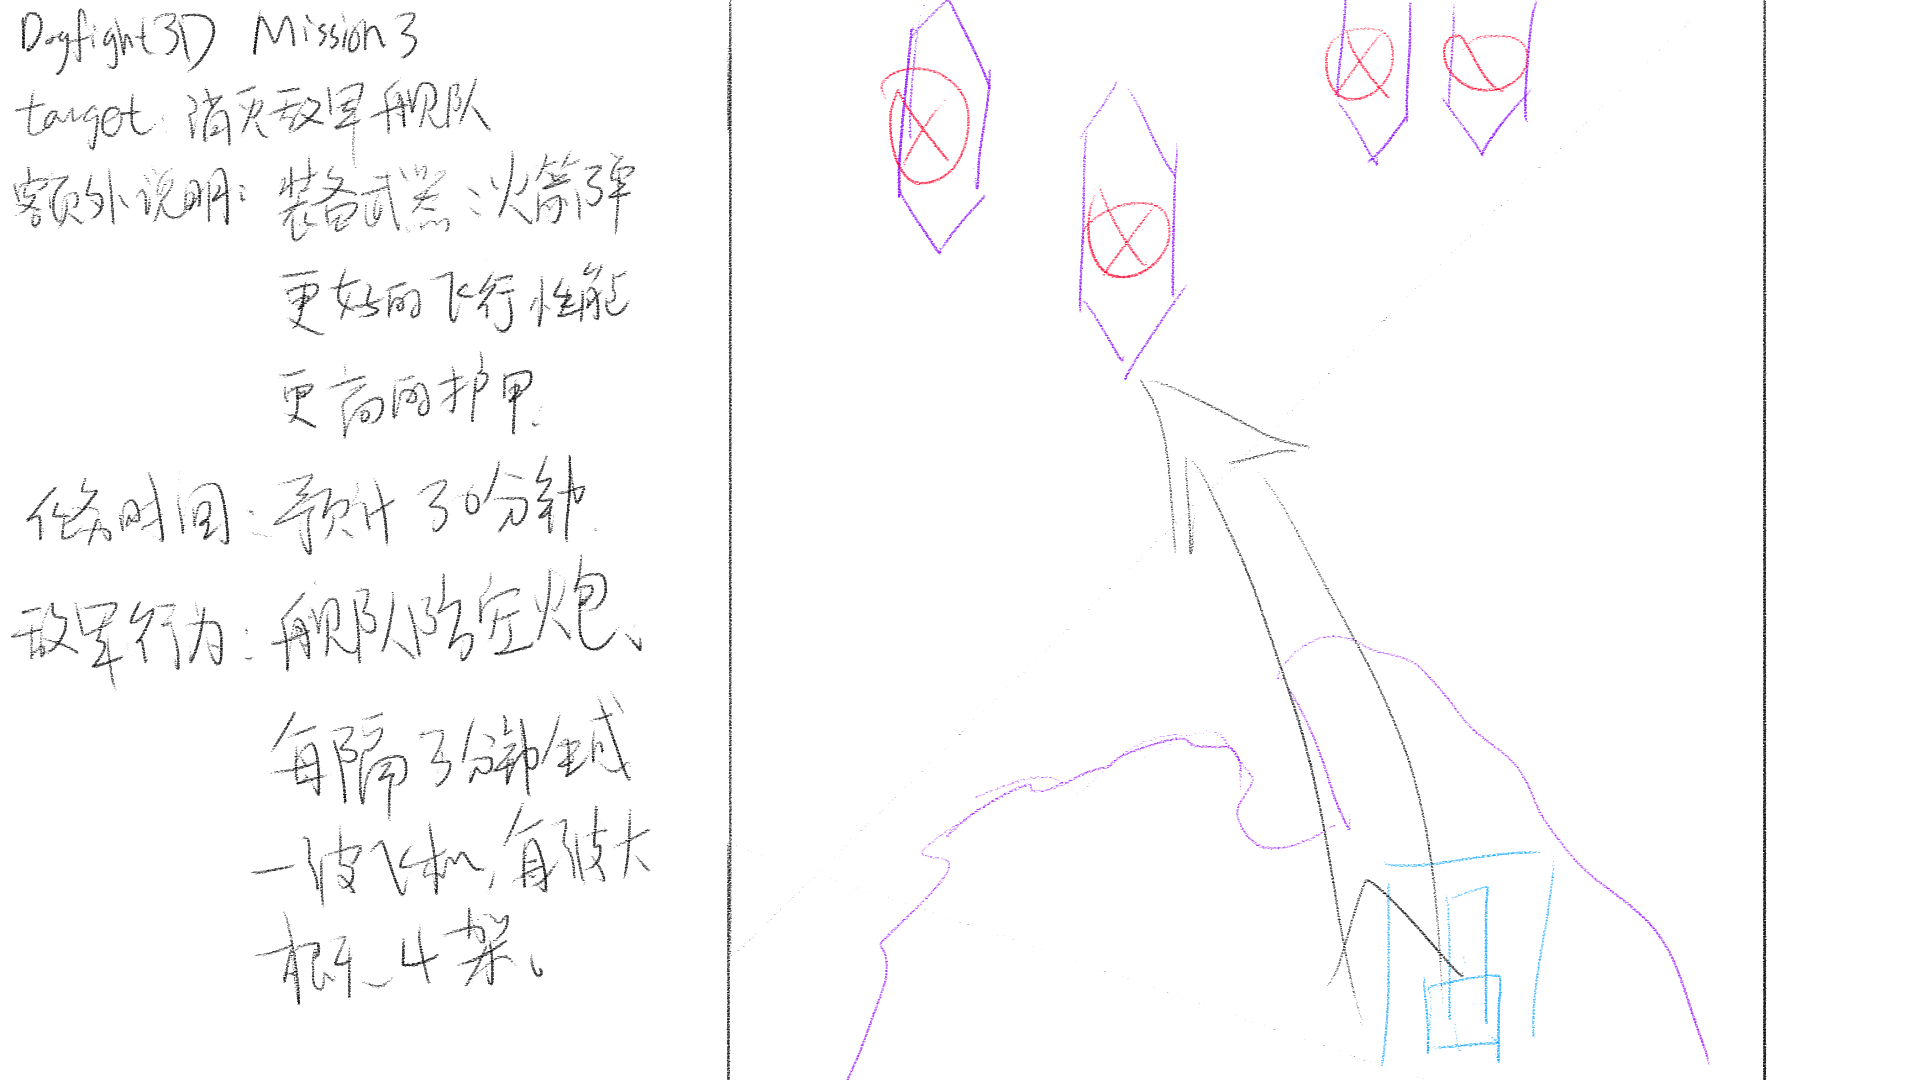 Dogfight3D Mission3
target: 消灭敌军舰队
额外说明: 装备武器:火箭弹
更好的飞行性能
更高的护甲.
任务时间: 预计30分钟.
敌军行为: 舰队防空炮、
每隔3分钟生成
一波飞机,每波大
概 4架。